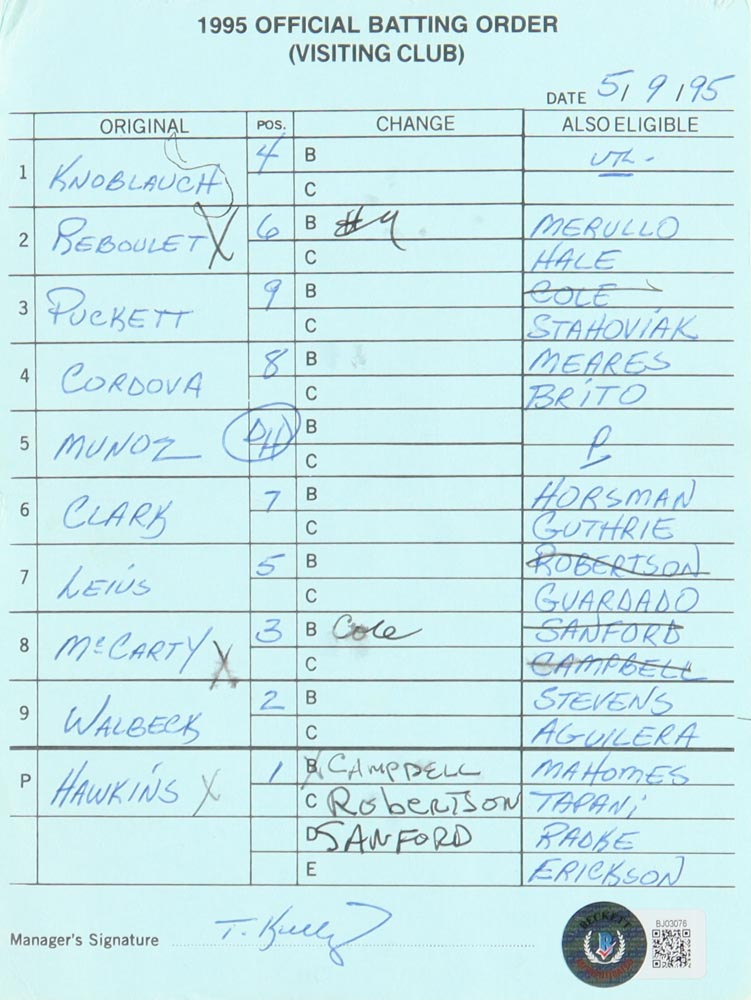 1995 OFFICIAL BATTING ORDER
(VISITING CLUB)
DATE 5/9/95
ORIGINAL POS. CHANGE ALSO ELIGIBLE
1 KNOBLAUCH 4 B UTL.
C
2 REBOULET X 6 B #4 MERULLO
C HALE
3 PUCKETT 9 B COLE
C STAHOVIAK
4 CORDOVA 8 B MEARES
C BRITO
5 MUNOZ DH B P
C
6 CLARK 7 B HORSMAN
C GUTHRIE
7 LEIUS 5 B ROBERTSON
C GUARDADO
8 McCARTY X 3 B Cole SANFORD
C CAMPBELL
9 WALBECK 2 B STEVENS
C AGUILERA
P HAWKINS X 1 B X CAMPBELL MAHOMES
C ROBERTSON TAPANI
D SANFORD RADKE
E ERICKSON
Manager's Signature T. Kelly
BECKETT
BJ03076